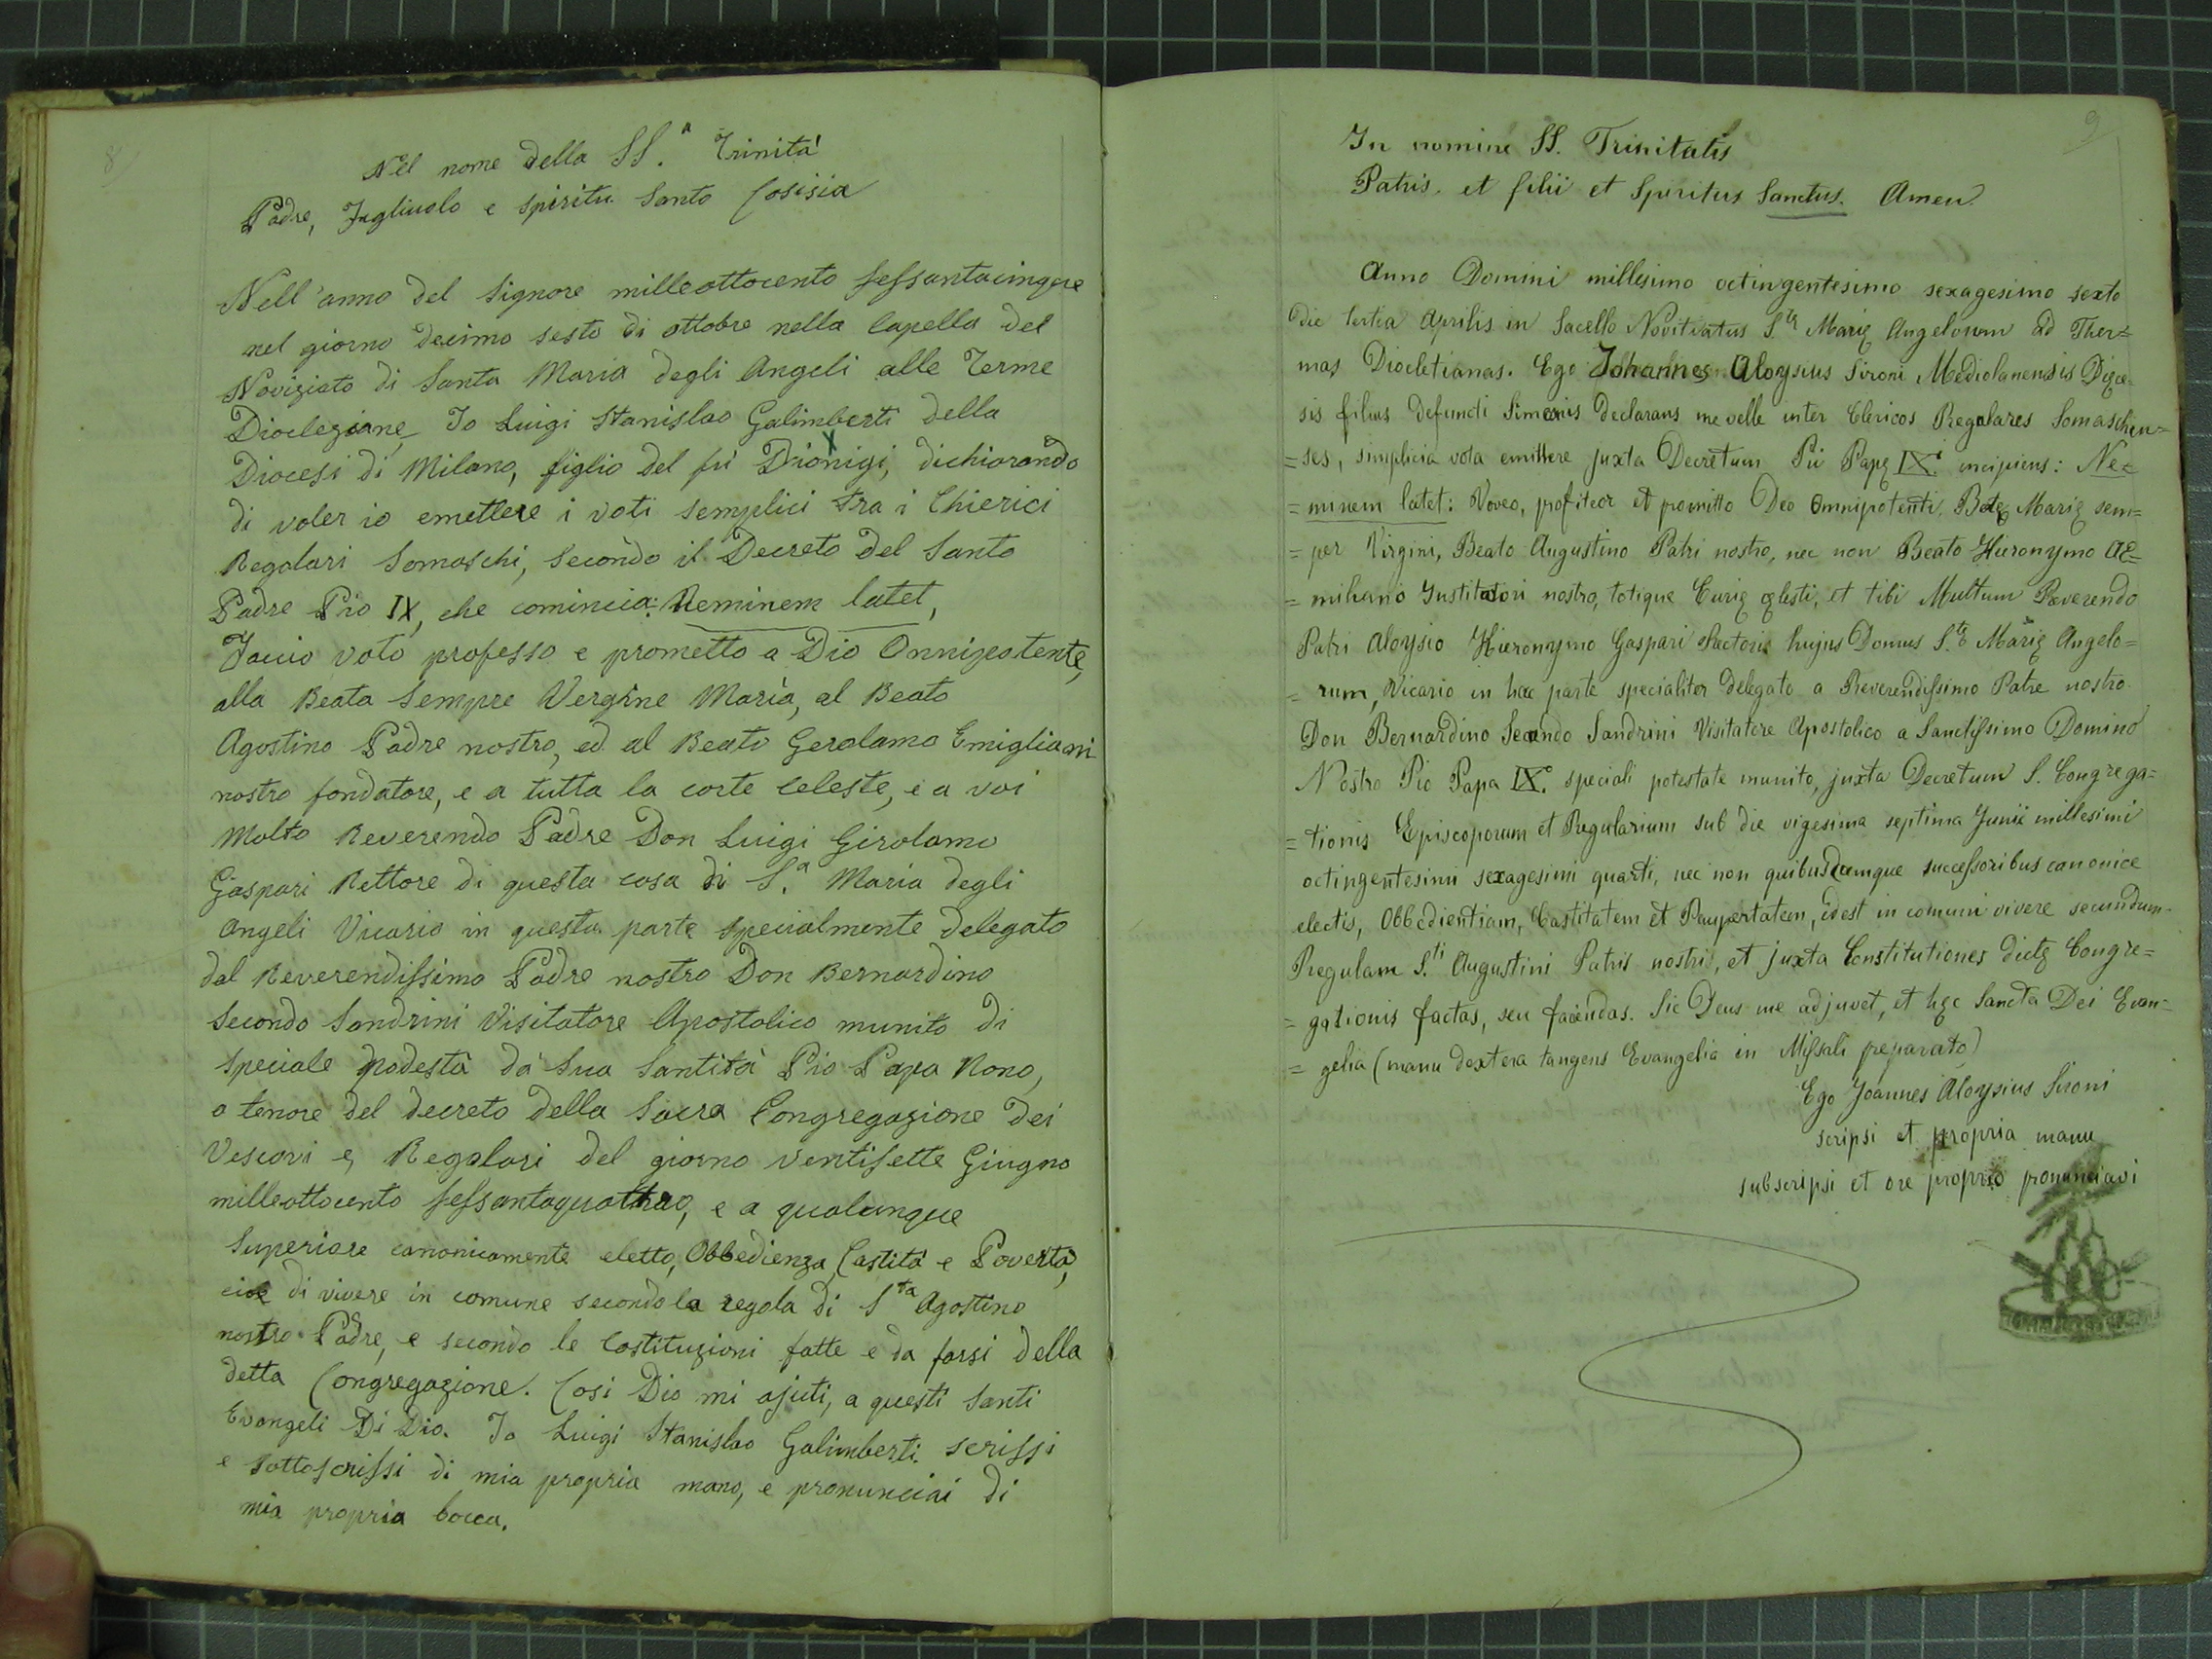 8
Nel nome della SS.a Trinità
Padre, Figliuolo e Spiritu Santo Cosisia
Nell'anno del Signore milleottocento sessantacinque
nel giorno decimo sesto di ottobre nella Capella del
Noviziato di Santa Maria degli Angeli alle Terme
Diocleziane Io Luigi Stanislao Galimberti della
Diocesi di Milano, figlio del fù Dionigi, dichiarando
di voler io emettere i voti semplici tra i Chierici
Regolari Somaschi, secondo il Decreto del Santo
Padre Pio IX, che comincia: Neminem latet,
Faccio voto professo e prometto a Dio Onnipotente,
alla Beata sempre Vergine Maria, al Beato
Agostino Padre nostro, ed al Beato Gerolamo Emigliani
nostro fondatore, e a tutta la corte celeste, e a voi
Molto Reverendo Padre Don Luigi Girolamo
Gaspari Rettore di questa casa di S.a Maria degli
Angeli Vicario in questa parte specialmente delegato
dal Reverendissimo Padre nostro Don Bernardino
Secondo Sandrini Visitatore Apostolico munito di
speciale podestà da Sua Santità Pio Papa Nono,
a tenore del decreto della Sacra Congregazione dei
Vescovi e Regolari del giorno ventisette Giugno
milleottocento sessantaquattro, e a qualunque
Superiore canonicamente eletto, Obbedienza, Castità e Povertà,
cioè di vivere in comune secondo la regola di S.ta Agostino
nostro Padre, e secondo le Costituzioni fatte e da farsi della
detta Congregazione. Così Dio mi ajuti, a questi Santi
Evangeli Di Dio. Io Luigi Stanislao Galimberti scrissi
e sottoscrissi di mia propria mano, e pronunciai di
mia propria bocca.
9
In nomine SS. Trinitatis
Patris, et filii et Spiritus Sanctus. Amen.
Anno Domini millesimo octingentesimo sexagesimo sexto
die tertia Aprilis in Sacello Novitiatus S.tę Marię Angelorum ad Ther=
mas Diocletianas. Ego Johannes Aloysius Sironi Mediolanensis Diœce=
sis filius defuncti Simeonis declarans me velle inter Clericos Regulares Somaschen=
=ses, simplicia vota emittere juxta Decretum Pii Papę IXi incipiens: Ne=
=minem latet: Voveo, profiteor et promitto Deo Omnipotenti, Beatę Marię sem=
=per Virgini, Beato Augustino Patri nostro, nec non Beato Hieronymo AE=
=miliano Institutori nostro, totique Curię cęlesti, et tibi Multum Reverendo
Patri Aloysio Hieronymo Gaspari Rectoris hujus Domus S.tę Marię Angelo=
=rum, Vicario in hac parte specialiter delegato a Reverendissimo Patre nostro
Don Bernardino Secundo Sandrini Visitatore Apostolico a Sanctissimo Domino
Nostro Pio Papa IX.o speciali potestate munito, juxta Decretum S. Congrega=
=tionis Episcoporum et Regularium sub die vigesima septima Junii millesimi
octingentesimi sexagesimi quarti, nec non quibuscumque successoribus canonice
electis, Obbedientiam, Castitatem et Paupertatem, idest in comuni vivere secundum
Regulam S.ti Augustini Patris nostri, et juxta Constitutiones dictę Congre=
=gationis factas, seu faciendas. Sic Deus me adjuvet, et hęc Sancta Dei Evan=
=gelia (manu dextera tangens Evangelia in Missali preparato)
Ego Joannes Aloysius Sironi
scripsi et propria manu
subscripsi et ore proprio pronunciavi